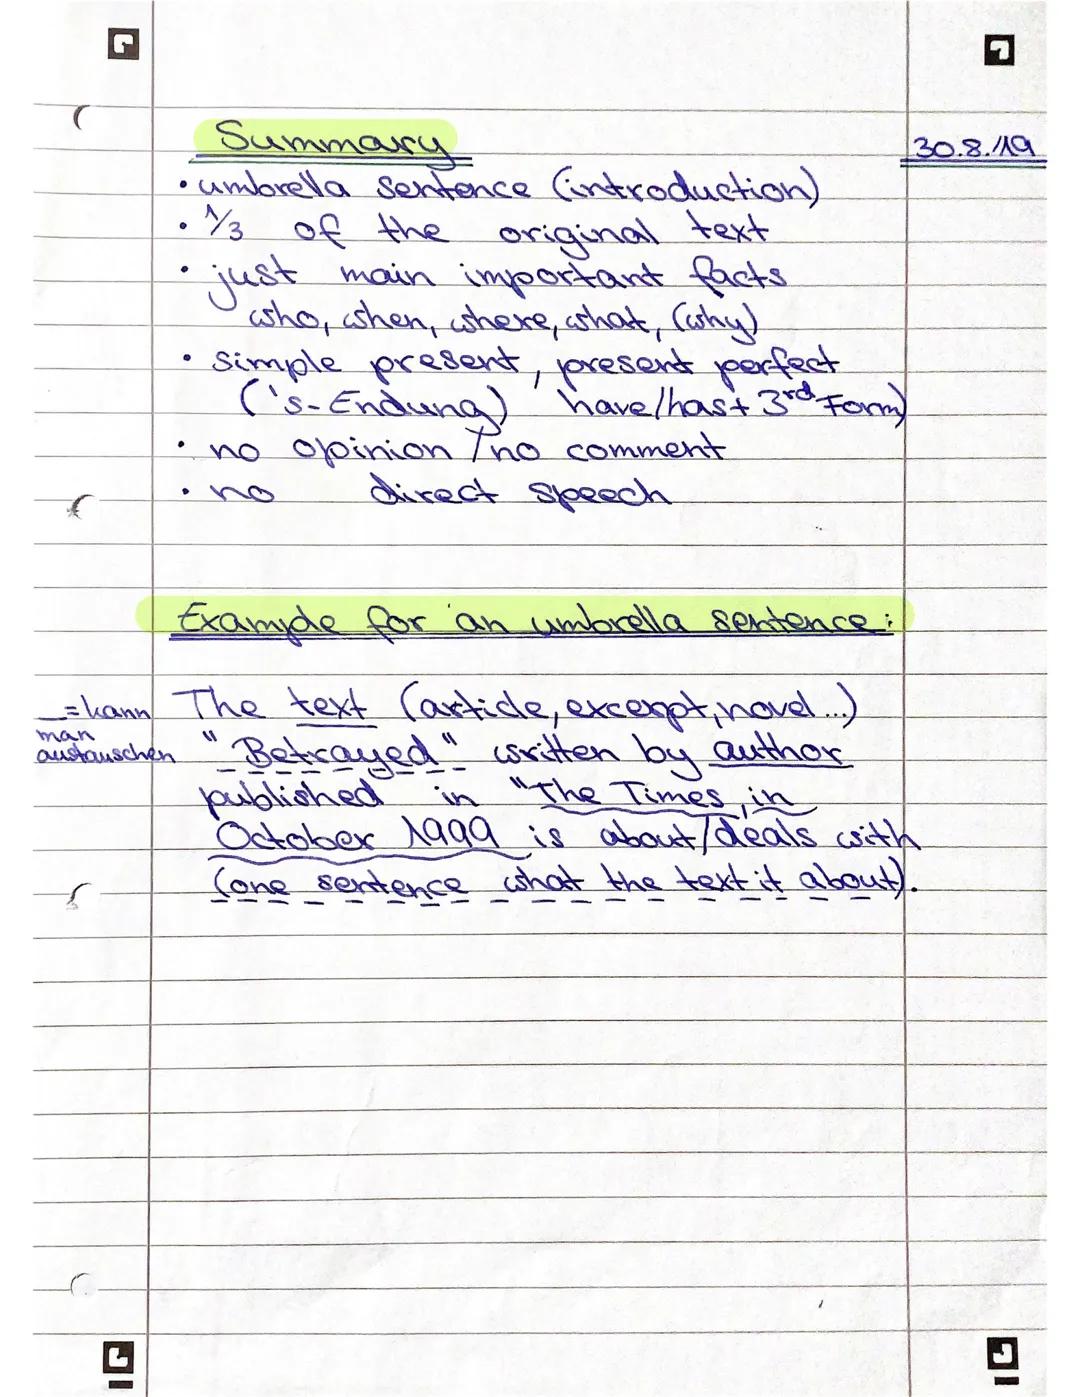 Summary
30.8./19
• umbrella sentence (introduction)
• 1/3 of the original text
• just main important facts
who, when, where, what, (why)
• simple present, present perfect
('s-Endung) have/has + 3rd Form)
• no opinion / no comment
• no direct speech
Example for an umbrella sentence:
_ = kann
man
austauschen
The text (article, excerpt, novel...)
"Betrayed" written by author
published in "The Times, in
October 1999 is about/deals with
(one sentence what the text it about).